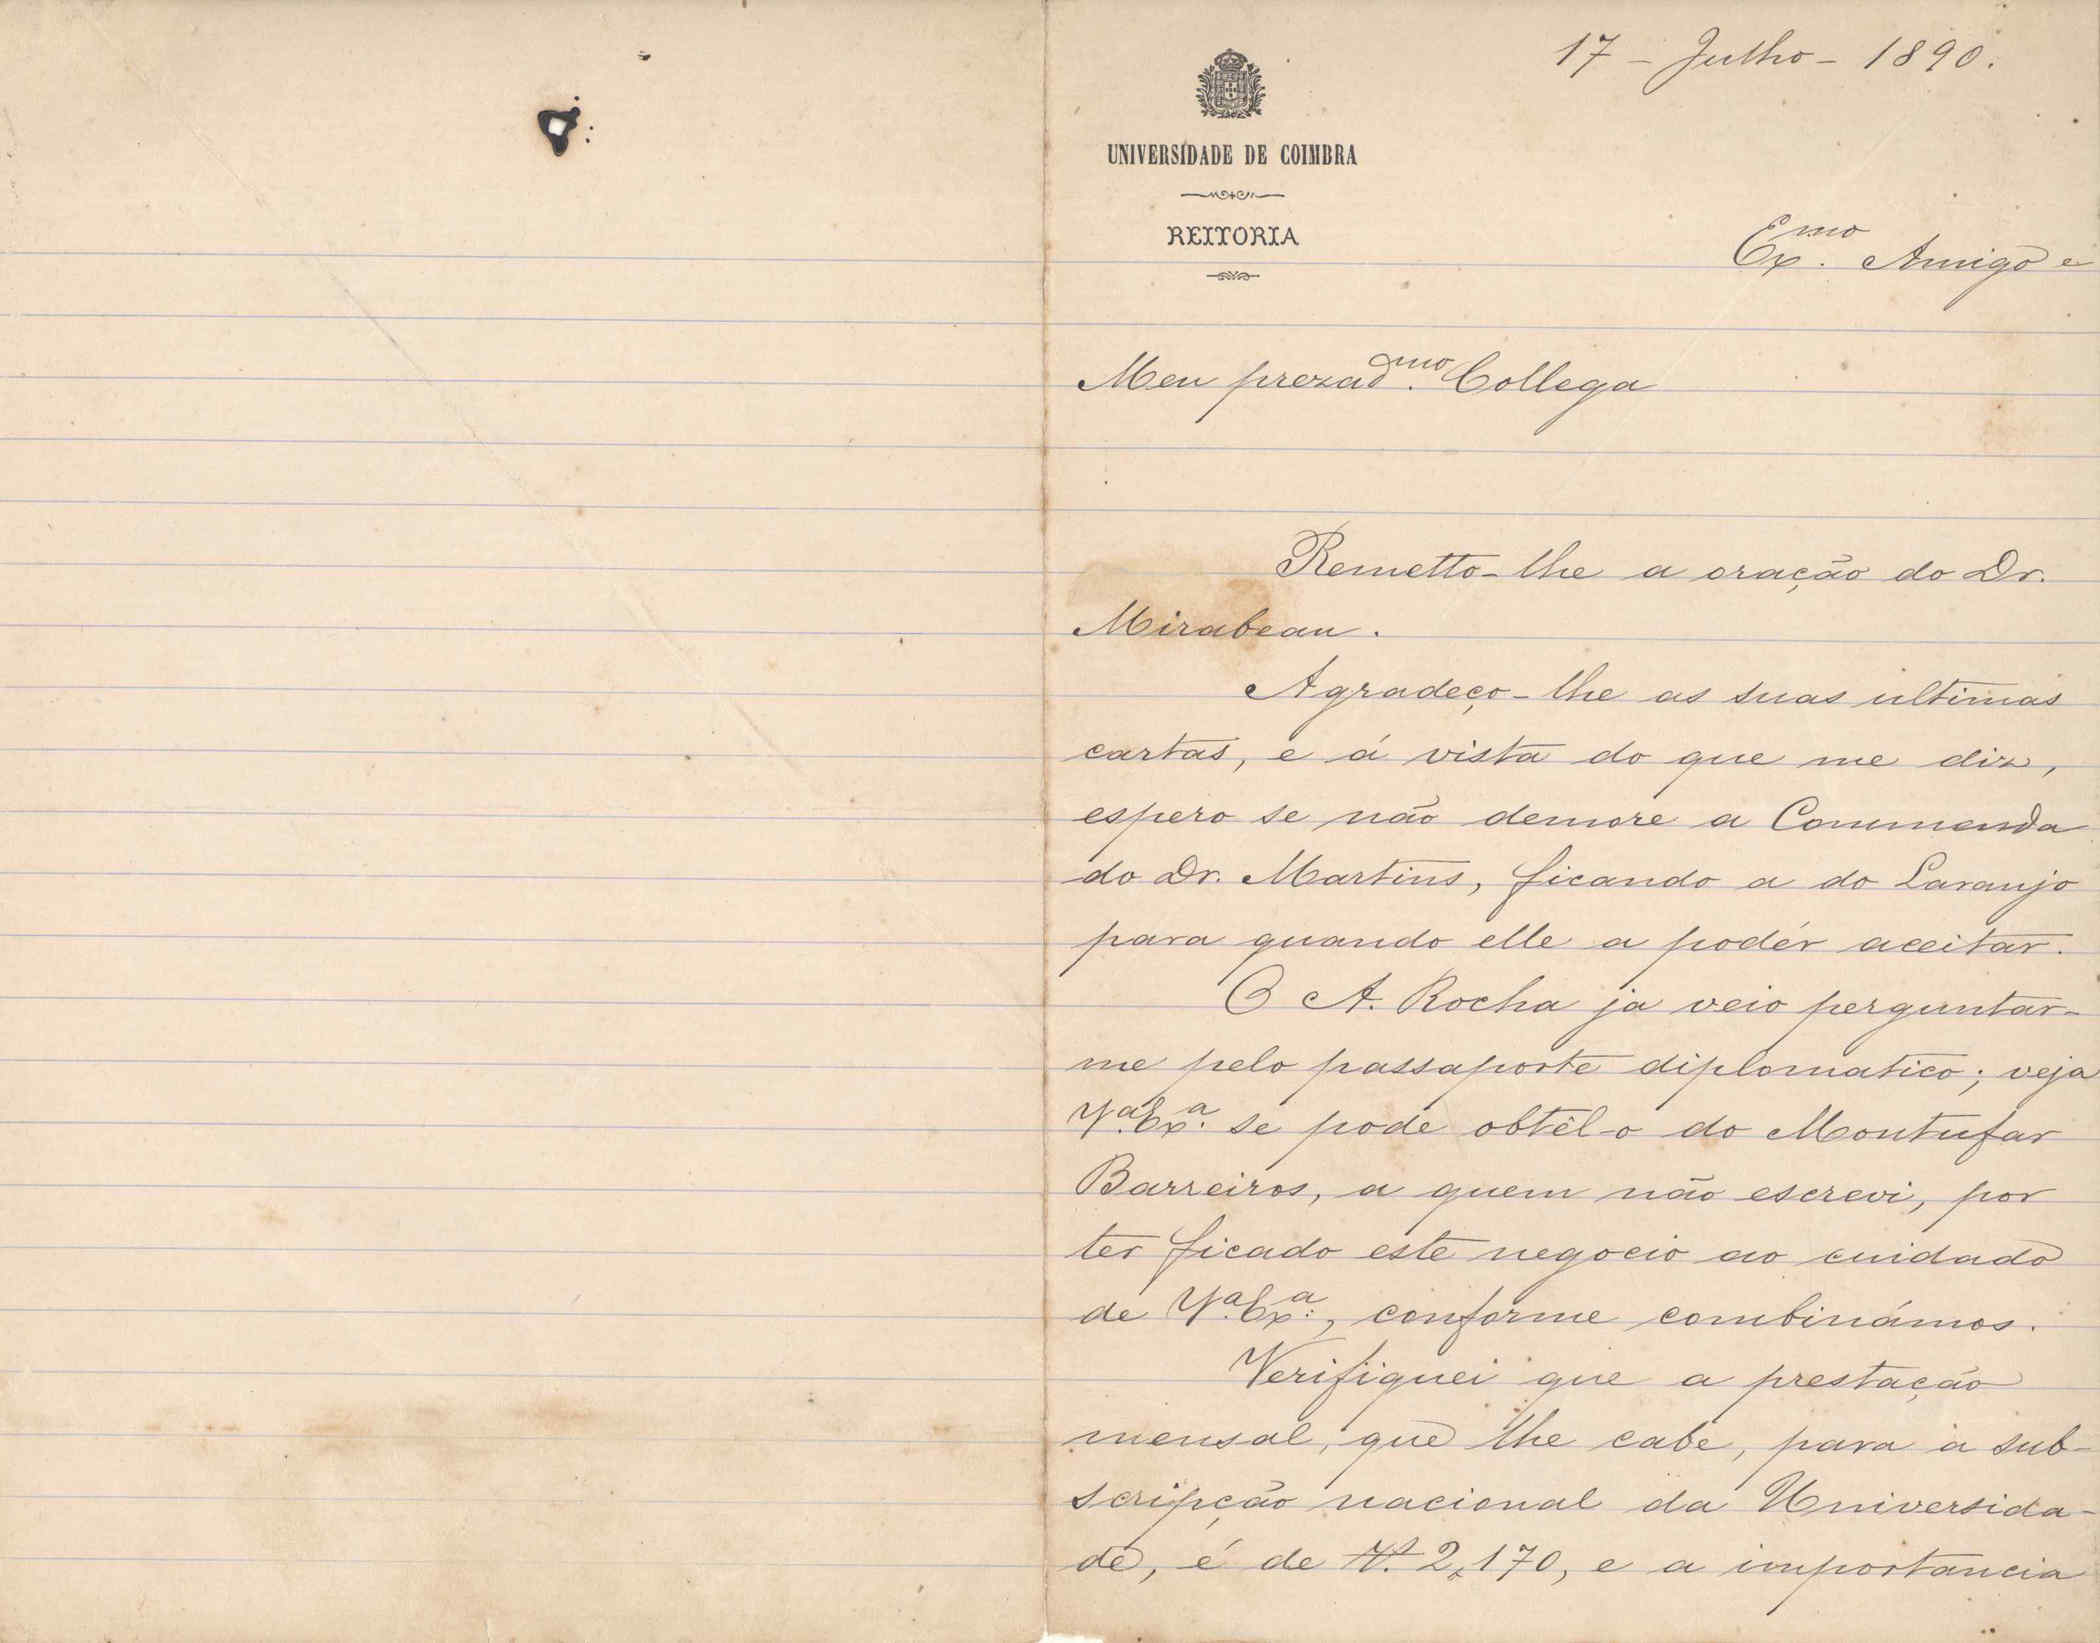 17 - Julho - 1890.
UNIVERSIDADE DE COIMBRA
REITORIA
Ex.mo Amigo e
Meu prezad.mo Collega
Remetto-lhe a oração do Dr.
Mirabeau.
Agradeço-lhe as suas ultimas
cartas, e á vista do que me diz,
espero se não demore a Commenda
do Dr. Martins, ficando a do Laranjo
para quando elle a podér aceitar.
O A. Rocha ja veio perguntar-
me pelo passaporte diplomatico; veja
V.a Ex.a se pode obtêl-o do Montufar
Barreiros, a quem não escrevi, por
ter ficado este negocio ao cuidado
de V.a Ex.a, conforme combinámos.
Verifiquei que a prestação
mensal, que lhe cabe, para a sub-
scripção nacional da Universida-
de, é de 2,170, e a importancia